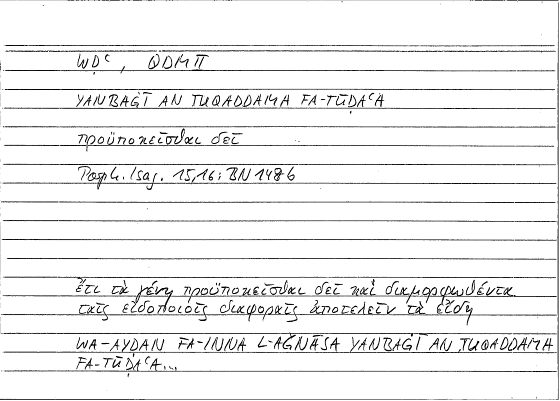 WḌʿ, QDM II
YANBAĠĪ AN TUQADDAMA FA-TŪḌAʿA
προϋποκεῖσθαι δεῖ
Porph. Isag. 15,16; BN 148b
ἔτι τὰ γένη προϋποκεῖσθαι δεῖ καὶ διαμορφωθέντα
ταῖς εἰδοποιοῖς διαφοραῖς ἀποτελεῖν τὰ εἴδη
WA-AYḌAN FA-INNA L-AĞNĀSA YANBAĠĪ AN TUQADDAMA
FA-TŪḌAʿA...